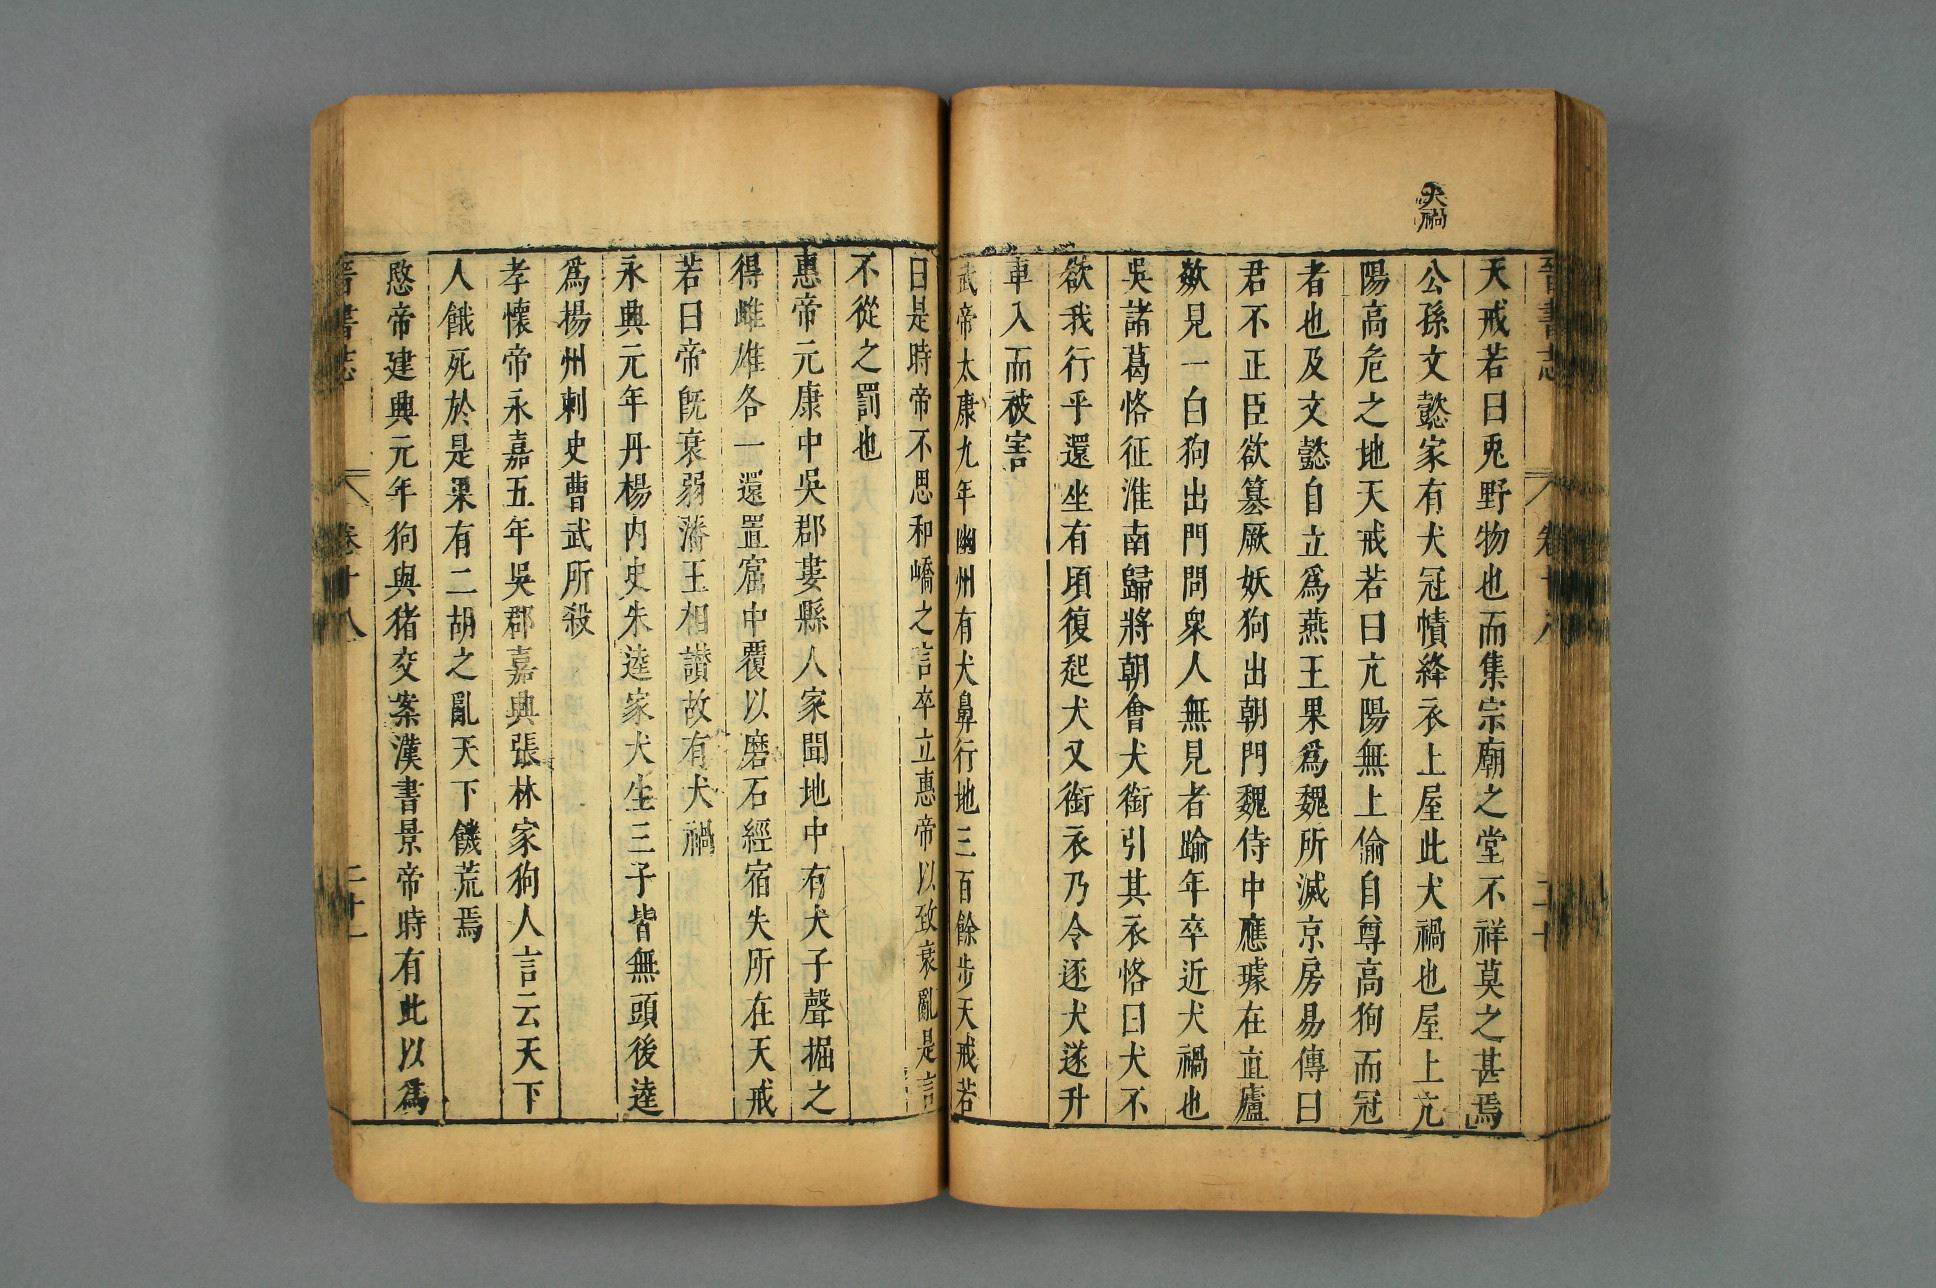 犬禍
天戒若曰兎野物也而集宗廟之堂不祥莫之甚焉
公孫文懿家有犬冠幘絳衣上屋此犬禍也屋上亢
陽高危之地天戒若曰亢陽無上偷自尊高狗而冠
者也及文懿自立爲燕王果爲魏所滅京房易傳曰
君不正臣欲篡厥妖狗出朝門魏侍中應璩在直廬
欻見一白狗出門問衆人無見者踰年卒近犬禍也
吳諸葛恪征淮南歸將朝會犬銜引其衣恪曰犬不
欲我行乎還坐有頃復起犬又銜衣乃令逐犬遂升
車入而被害
武帝太康九年幽州有犬鼻行地三百餘步天戒若
曰是時帝不思和嶠之言卒立惠帝以致衰亂是言
不從之罰也
惠帝元康中吳郡婁縣人家聞地中有犬子聲掘之
得雌雄各一還置窟中覆以磨石經宿失所在天戒
若曰帝既衰弱藩王相譖故有犬禍
永興元年丹楊內史朱逵家犬生三子皆無頭後逵
爲楊州刺史曹武所殺
孝懷帝永嘉五年吳郡嘉興張林家狗人言云天下
人餓死於是果有二胡之亂天下饑荒焉
愍帝建興元年狗與猪交案漢書景帝時有此以爲
晉書志
卷十八
二十一